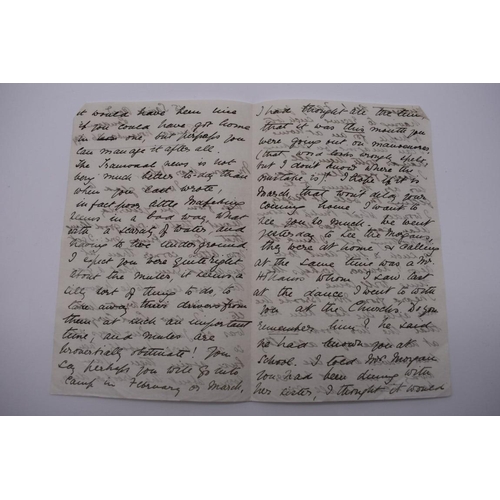 it would have been nice
if you could have got home
in one, but perhaps you
can manage it after all.
The Transvaal news is not
very much better to day than
when you last wrote,
in fact poor little Mafeking
seems in a bad way what
with a scarcity of water and
having to live underground
I expect you were quite right
about the mules, it seems a
silly sort of thing to do, to
take away their drivers from
them at such an important
time, and mules are
proverbially obstinate! You
say perhaps you will go into
camp in February or March,
I had thought all the time
that it was this month you
were going out on manoeuvres
(that word looks wrongly spelt,
but I don't know where the
mistake is) I hope if it is
March that won't delay your
coming home I want to
see you so much. We went
yesterday to see the
they were at home & calling
at the same time was a Mr
whom I saw last
at the dance I went to with
you at the Do you
remember him? he said
he had known you at
school. I told Mrs
you had been dining with
her sister, I thought it would